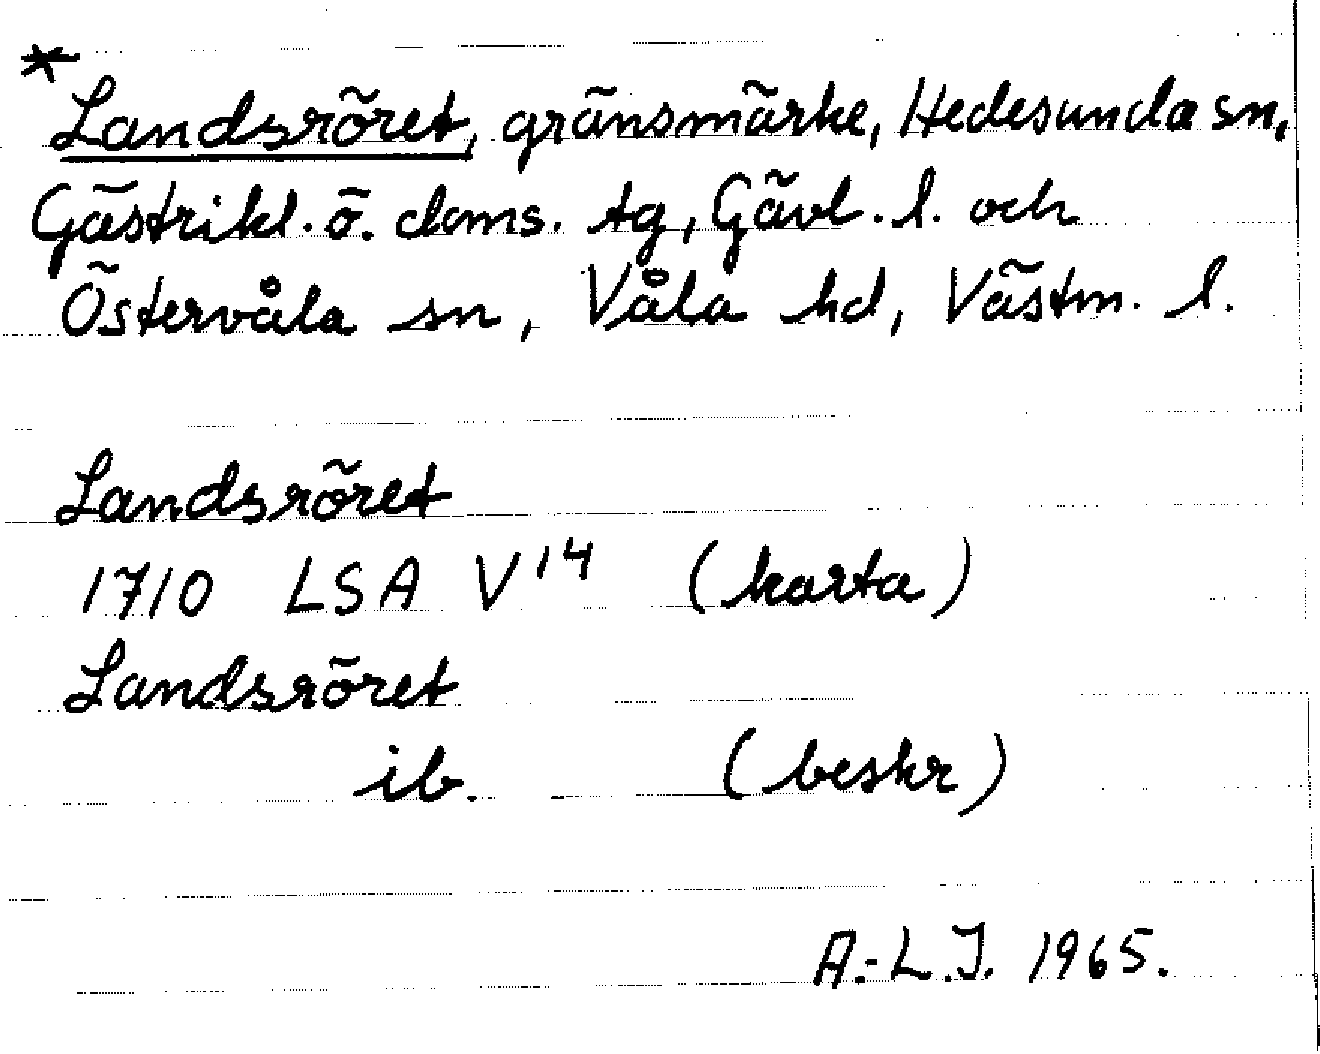 *
Landsröret, gränsmärke, Hedesunda sn,
Gästrikl. ö. doms. tg, Gävl. l. och
Östervåla sn, Våla hd, Västm. l.
Landsröret
1710 LSA V14 (karta)
Landsröret
ib. (beskr)
A.-L.J. 1965.